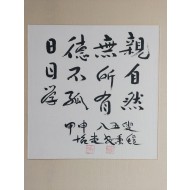 親自然
無所有
德不孤
日日学
八五叟
甲申